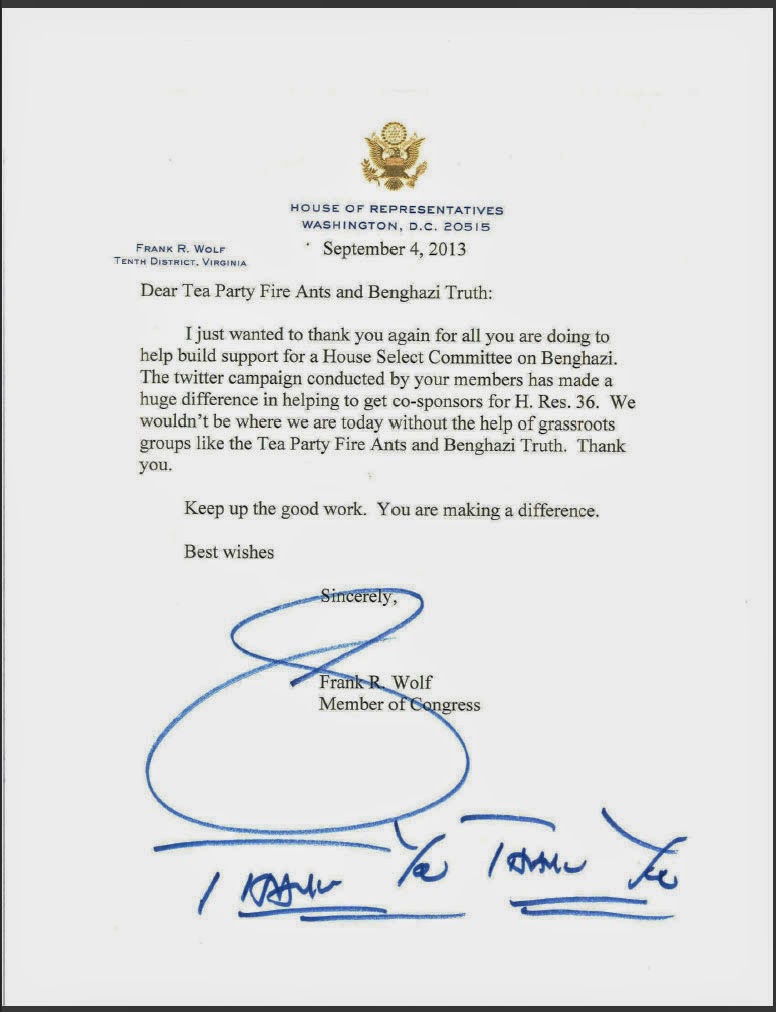 HOUSE OF REPRESENTATIVES
WASHINGTON, D.C. 20515
FRANK R. WOLF
TENTH DISTRICT, VIRGINIA
September 4, 2013
Dear Tea Party Fire Ants and Benghazi Truth:
I just wanted to thank you again for all you are doing to
help build support for a House Select Committee on Benghazi.
The twitter campaign conducted by your members has made a
huge difference in helping to get co-sponsors for H. Res. 36. We
wouldn't be where we are today without the help of grassroots
groups like the Tea Party Fire Ants and Benghazi Truth. Thank
you.
Keep up the good work. You are making a difference.
Best wishes
Sincerely,
Frank R. Wolf
Member of Congress
Thank You Thank You